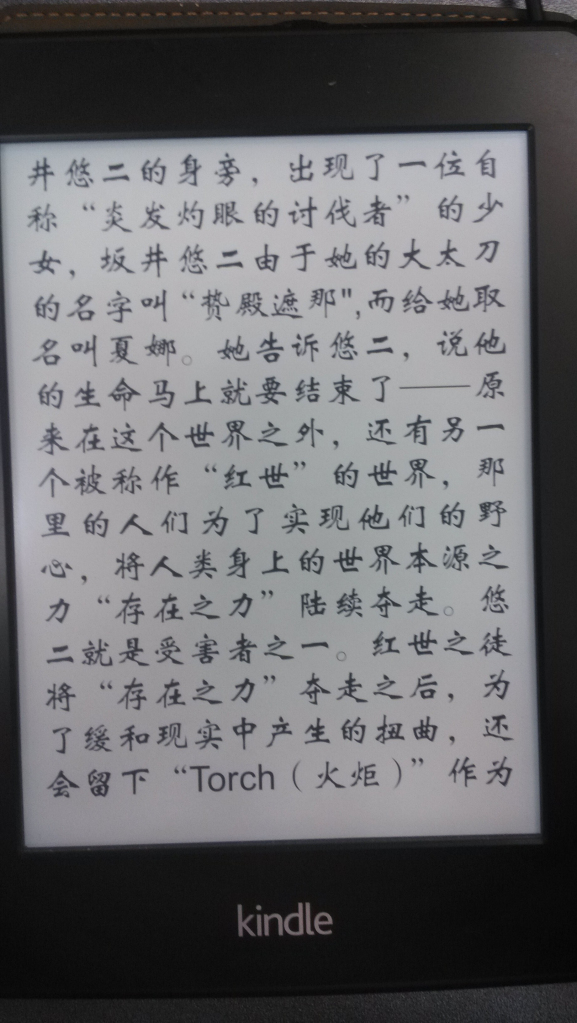 井悠二的身旁，出现了一位自
称“炎发灼眼的讨伐者”的少
女，坂井悠二由于她的大太刀
的名字叫“贽殿遮那",而给她取
名叫夏娜。她告诉悠二，说他
的生命马上就要结束了——原
来在这个世界之外，还有另一
个被称作“红世”的世界，那
里的人们为了实现他们的野
心，将人类身上的世界本源之
力“存在之力”陆续夺走。悠
二就是受害者之一。红世之徒
将“存在之力”夺走之后，为
了缓和现实中产生的扭曲，还
会留下“Torch（火炬）”作为
kindle